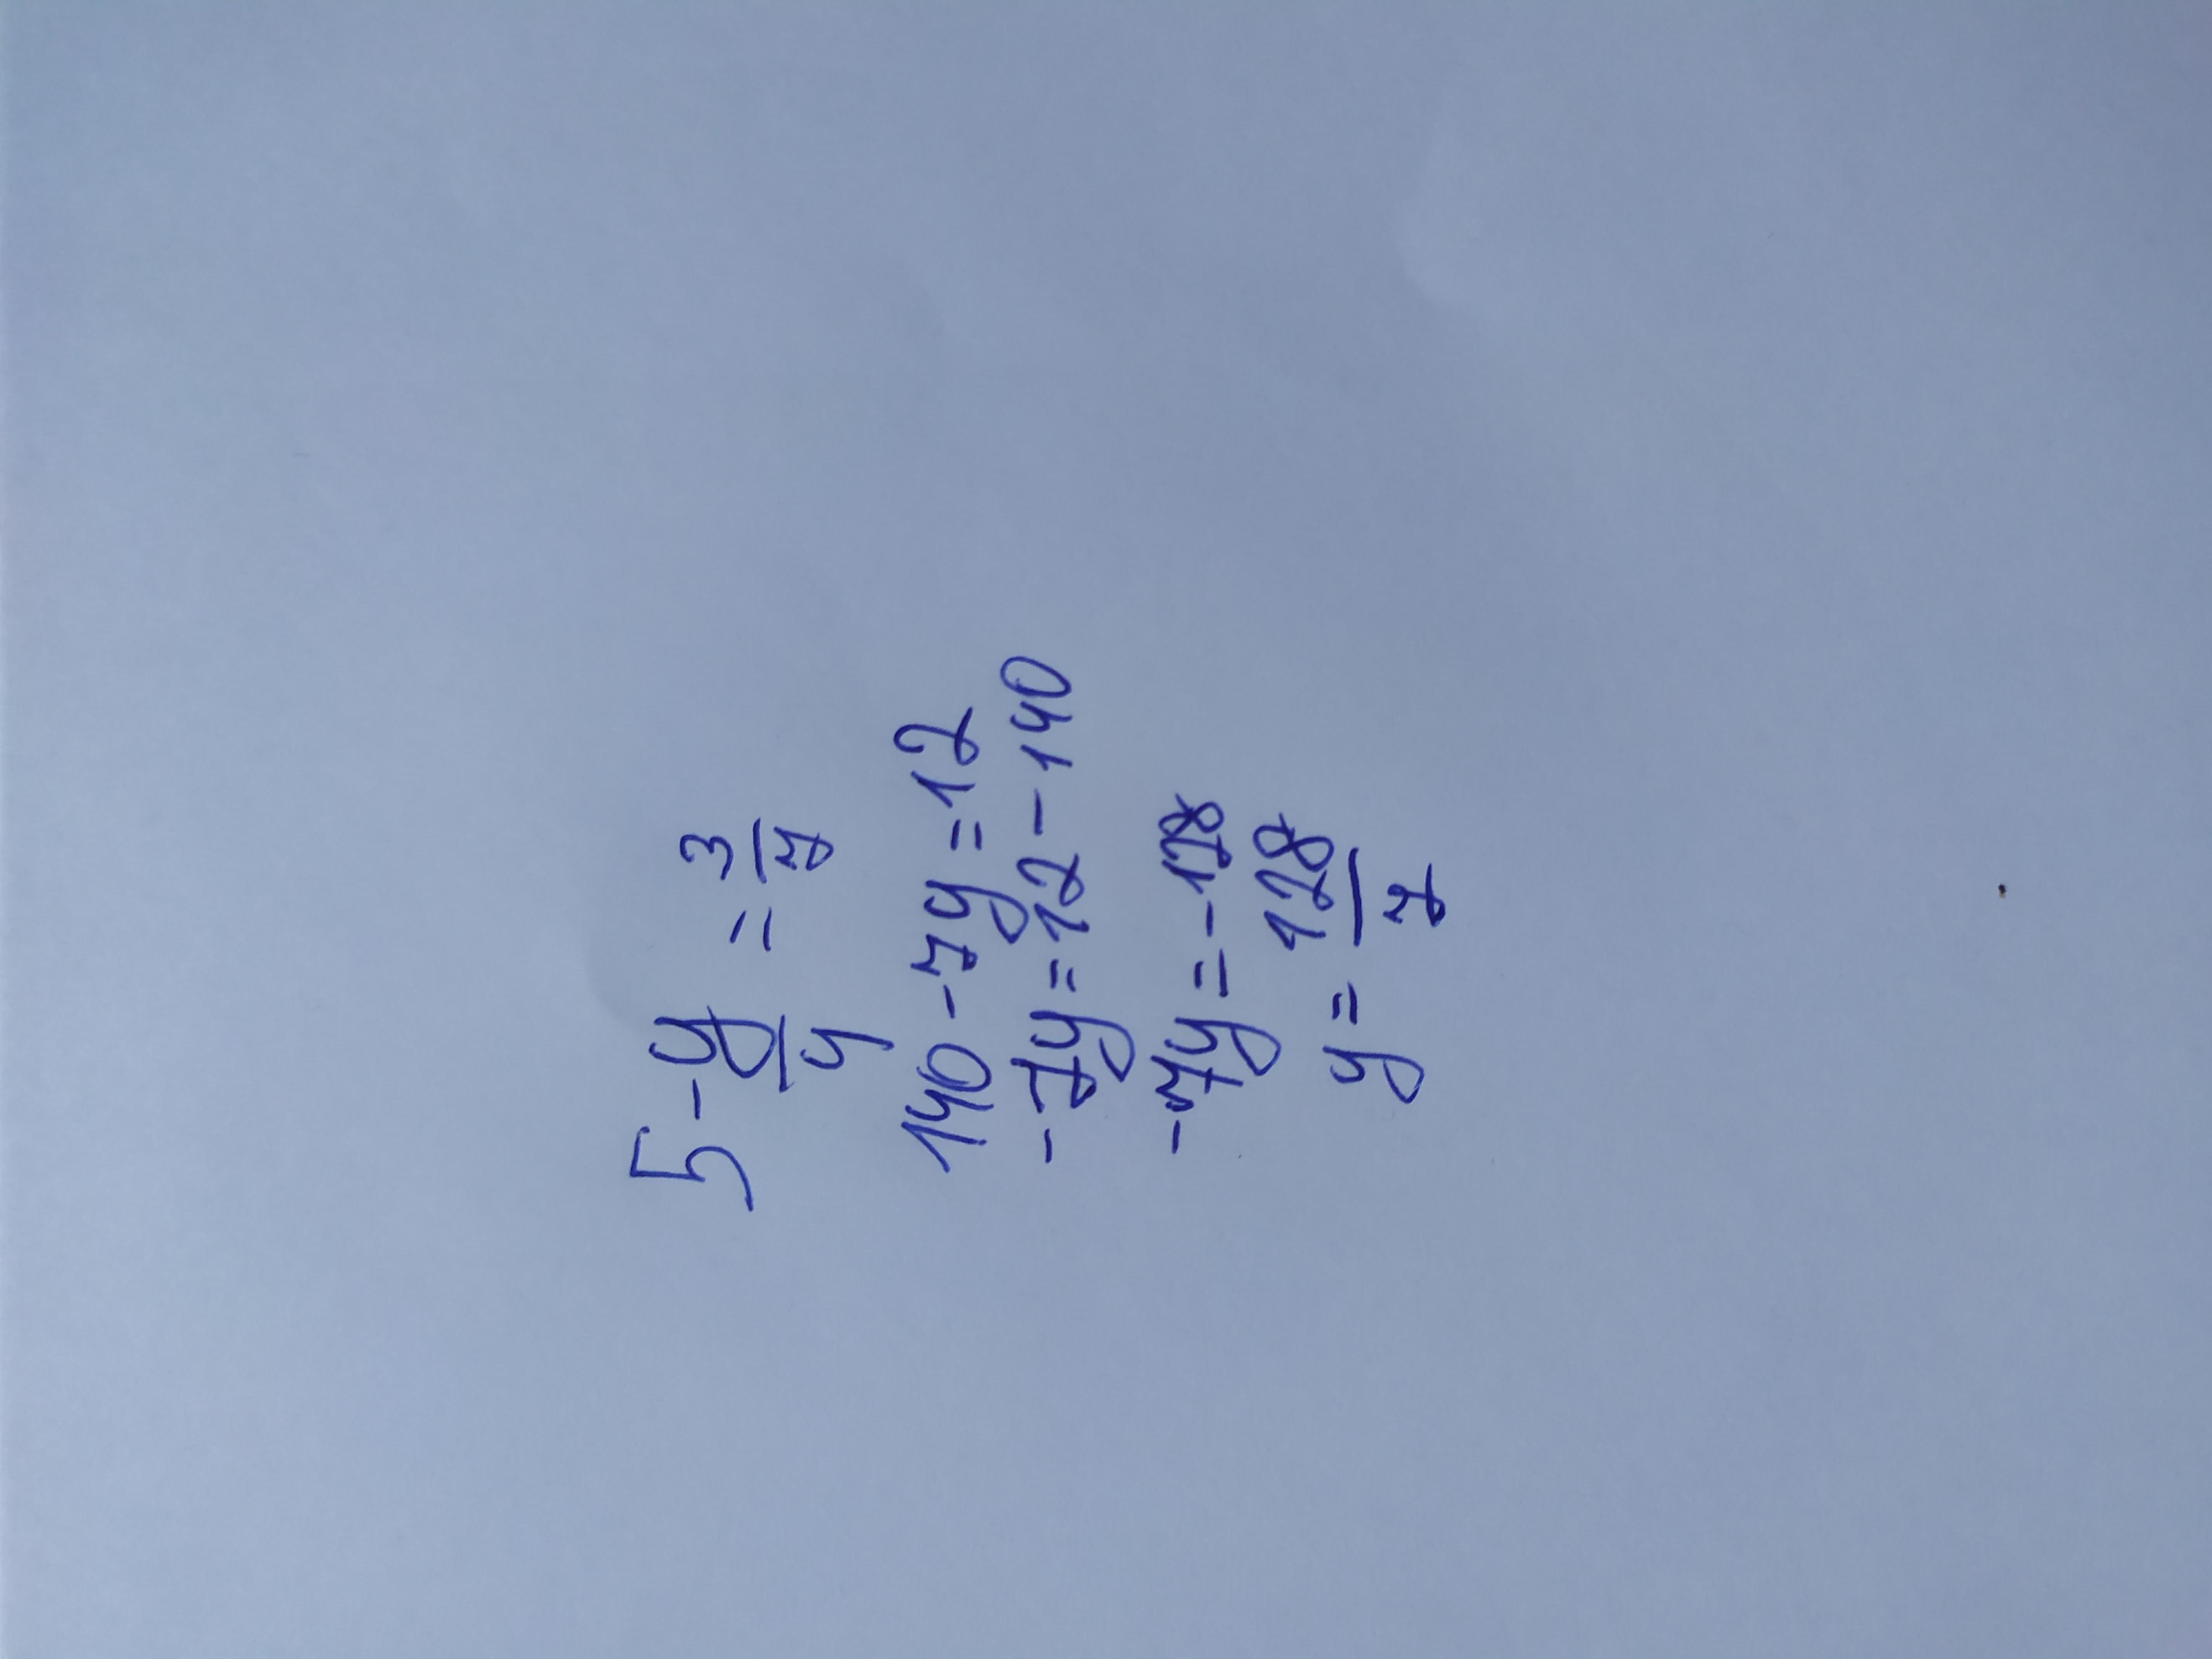 5 - y/4 = 3/7
140 - 7y = 12
-7y = 12 - 140
-7y = -128
y = 128/7